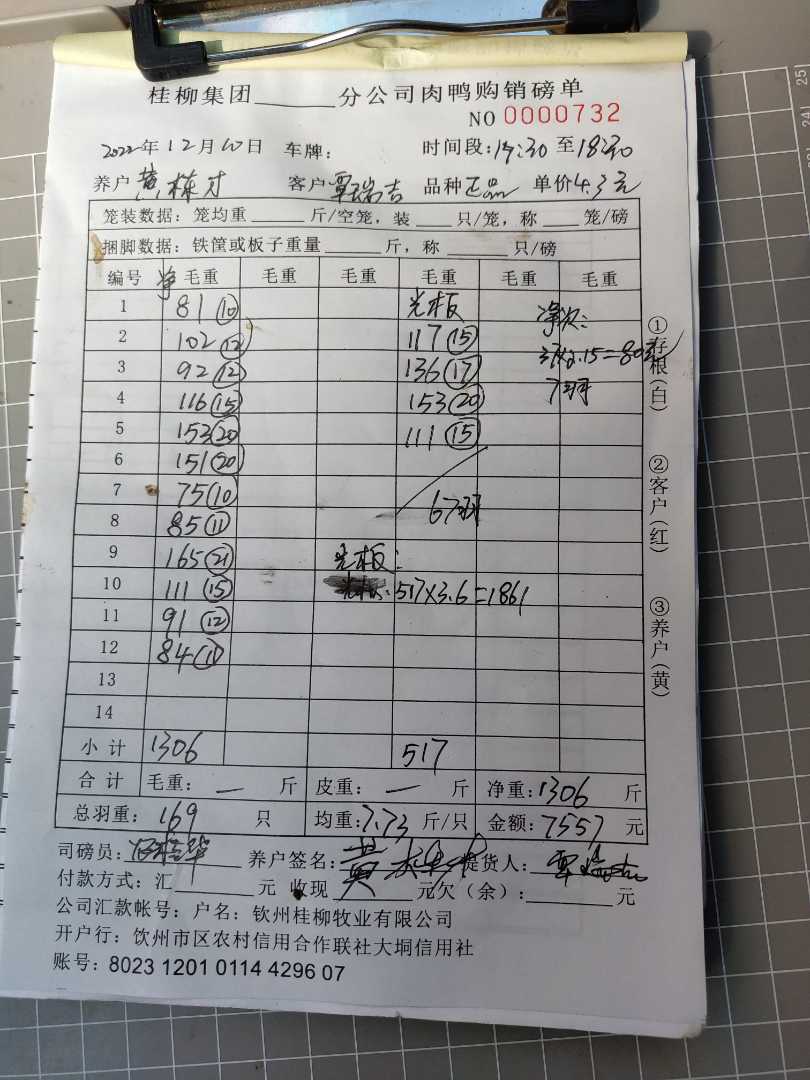 桂柳集团______分公司肉鸭购销磅单
NO 0000732
2022年12月10日 车牌: 时间段:17:30至18:30
养户黄栋才 客户覃瑞吉 品种正品 单价4.3元
笼装数据: 笼均重______斤/空笼, 装____只/笼, 称____笼/磅
捆脚数据: 铁筐或板子重量______斤, 称______只/磅
编号 净毛重 毛重 毛重 毛重 毛重 毛重
1 81⑩ 光板
2 102⑫ 117⑮
3 92⑫ 136⑰
4 116⑮ 153⑳
5 153⑳ 111⑮
6 151⑳
7 75⑩ 67羽
8 85⑪
9 165㉑ 光板:
10 111⑮ 517×3.6=1861
11 91⑫
12 84⑪
13
14
小计 1306 517
7羽
合计 毛重: — 斤 皮重: — 斤 净重:1306 斤
总羽重: 169 只 均重:7.73斤/只 金额:7557元
司磅员: 养户签名: 提货人:
付款方式: 汇______元 收现______元欠(余):______元
公司汇款帐号: 户名: 钦州桂柳牧业有限公司
开户行: 饮州市区农村信用合作联社大垌信用社
账号: 8023 1201 0114 4296 07
①存根(白)
②客户(红)
③养户(黄)